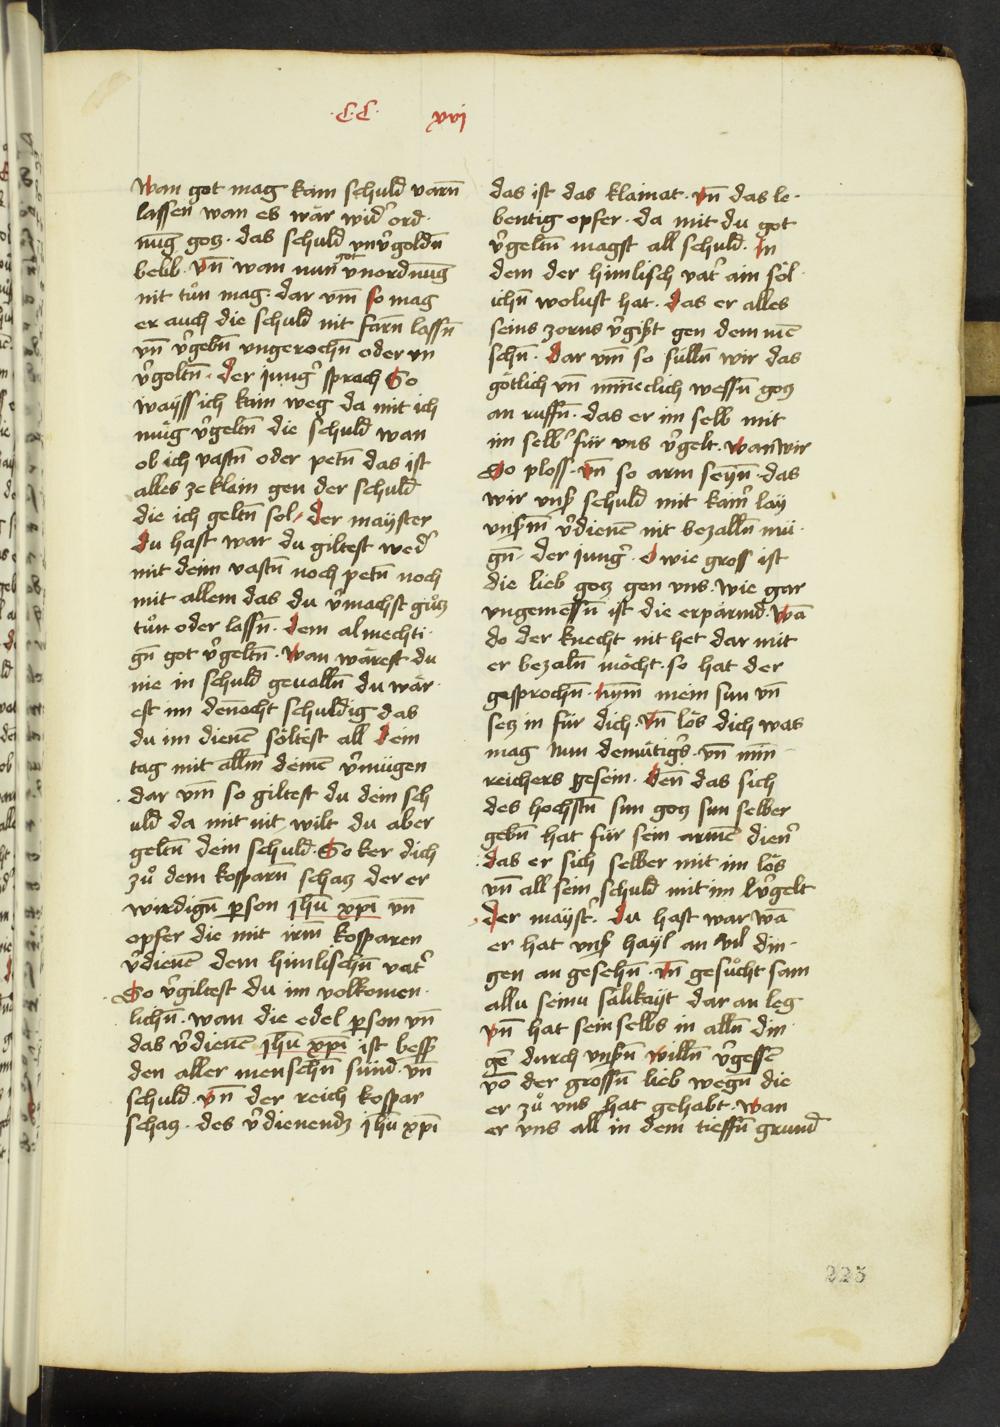 ·C·C· xvj
Wan got mag kain schuld varn̄
lassen wan es wär wid' ord·
nūg gotz · das schuld vnv'goldn̄
belib · vn̄ wan nun got vnordnūg
nit tůn mag · dar vm̄ so mag
er auch die schuld nit farn̄ lassn̄
vn̄ v'gebn̄ vngerochn̄ oder vn
v'goltn̄ · der jung' sprach So
wayss ich kain weg da mit ich
müg v'geltn̄ die schuld wan
ob ich vastn̄ oder petn̄ das ist
alles ze klain gen der schuld
die ich geltn̄ sol · der mayster
Du hast war du giltest wed'
mit deim vastn̄ noch petn̄ noch
mit allem das du v'machst gůtz
tůn oder lassn̄ · dem almechti·
gn̄ got v'geltn̄ · Wan wärest du
nie in schuld geualln̄ du wär·
est im deñocht schuldig das
du im dienē söltest all dem
tag mit allm̄ deinē v'mügen
dar vm̄ so giltest du dein sch
uld da mit nit wilt du aber
geltn̄ dein schuld · So ker dich
zů dem kosparn̄ schatz der er
wirdign̄ person jhū xp̄i vn̄
opfer die mit irm̄ kosparen
v'dienē dem himlischn̄ vat'
So v'giltest du im volkomen·
lichn̄ · wan die edel person vn̄
das v'dienē jhū xp̄i ist bess'
den aller menschn̄ sünd · vn̄
schuld · vn̄ der reich kospar
schatz · des v'dienendz jhū xp̄i
das ist das klainat · vn̄ das le·
bentig opfer · da mit du got
v'geltn̄ magst all schuld · In
dem der himlisch vat' ain söl·
ichn̄ wolust hat · das er alles
seins zorns v'gißt gen dem mē
schn̄ · Dar vm̄ so sülln̄ wir das
götlich vn̄ miñeclich wessn̄ gotz
an ruffn̄ · das er im selb mit
im selb' für vns v'gelt · wan wir
So ploss · vn̄ so arm seyn̄ · das
wir vns' schuld mit kaim' lay
vns'm̄ v'dienē nit bezalln̄ mü·
gn̄ · der jung' · O wie gross ist
die lieb gotz gen vns · wie gar
vngemessn̄ ist die erpärmd · Wā
do der knecht nit het dar mit
er bezaln̄ möcht · so hat der
gesprochn̄ · nim̄ mein sun vn̄
setz in für dich · vn̄ lös dich was
mag nun demütig's · vn̄ min̄
reichers gesein · den̄ das sich
des hochstn̄ sun gotz sun selber
gebn̄ hat für sein armē dien'
das er sich selber mit im lös
vn̄ all sein schuld mit im v'gelt
der mayst' · du hast war wā
er hat vns' hayl an vil din·
gen an gesehn̄ · vn̄ gesůcht sam
allu seinu sälikayt dar an leg
vn̄ hat sein selbs in alln̄ din·
gē durch vns'n̄ willn̄ v'gessē
vō der grossn̄ lieb wegn̄ die
er zů vns hat gehabt · wan
er vns all in dem tieffn̄ grund
225